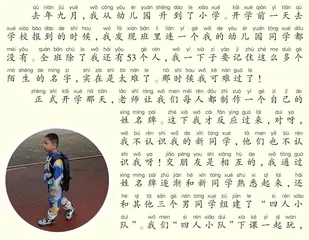 qù nián jiǔ yuè wǒ cóng yòu ér yuán shēng dào le xiǎo xué kāi xué qián yì tiān qù
去年九月，我从幼儿园升到了小学。开学前一天去
xué xiào bào dào de shí hou wǒ fā xiàn bān lǐ lián yí gè wǒ de yòu ér yuán tóng xué dōu
学校报到的时候，我发现班里连一个我的幼儿园同学都
méi yǒu quán bān chú le wǒ hái yǒu gè rén wǒ yí xià zi yào jì zhù zhè me duō gè
没有。全班除了我还有53个人，我一下子要记住这么多个
mò shēng de míng zi shí zài shì tài nán le nà shí hou wǒ kě nán guò le
陌生的名字，实在是太难了。那时候我可难过了！
zhèng shì kāi xué nà tiān lǎo shī ràng wǒ men měi rén dōu chuàng zuò yí gè zì jǐ de
正式开学那天，老师让我们每人都创作一个自己的
xìng míng pái zhè xià wǒ cái fǎn yìng guò lái duì ya
姓名牌。这下我才反应过来，对呀，
wǒ bú rèn shi wǒ de xīn tóng xué tā men yě bú rèn
我不认识我的新同学，他们也不认
shi wǒ ya jiāo péng you shì xiāng hù de wǒ tōng guò
识我呀！交朋友是相互的，我通过
xìng míng pái zhú jiàn hé xīn tóng xué shú xī qǐ lái hái
姓名牌逐渐和新同学熟悉起来，还
hé qí tā sān gè nán tóng xué zǔ jiàn le sì rén xiǎo
和其他三个男同学组建了“四人小
duì wǒ men sì rén xiǎo duì xià kè yì qǐ wán
队”。我们“四人小队”下课一起玩，